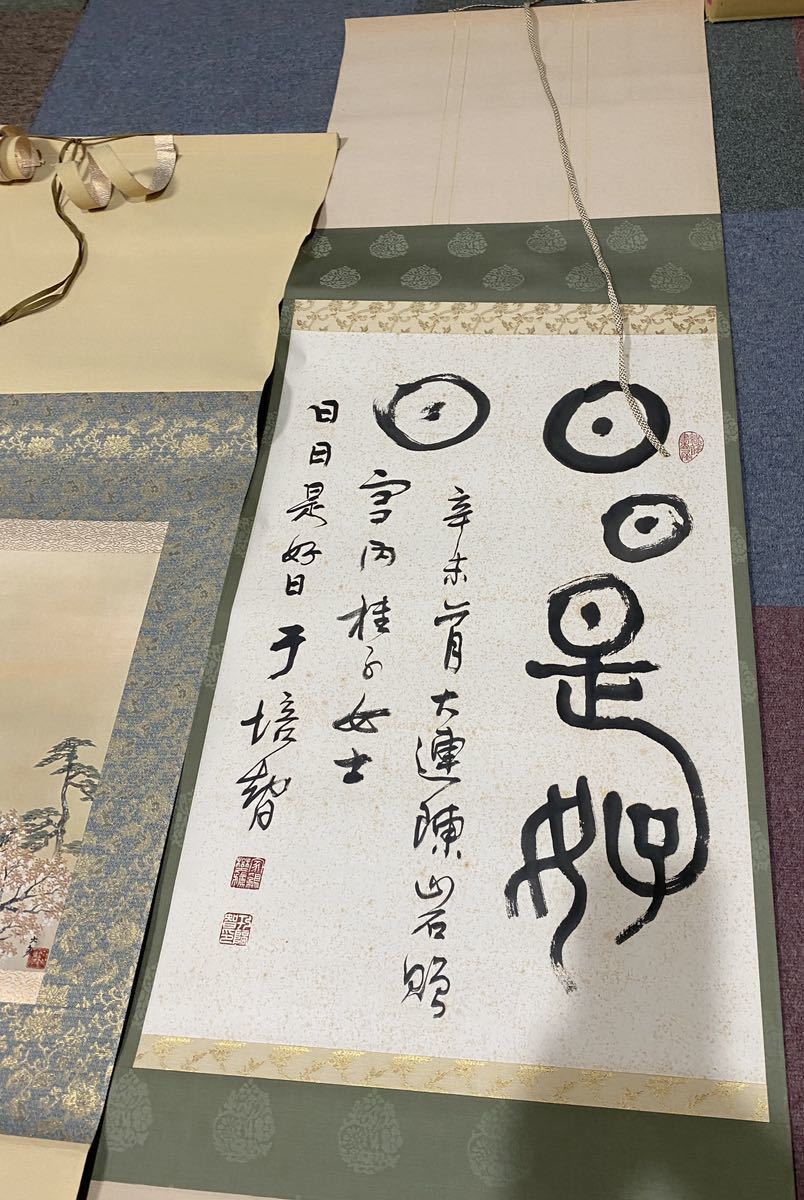 日日是好
日
辛未首大連陳岩贈
雪内桂子女士
日日是好日于培智